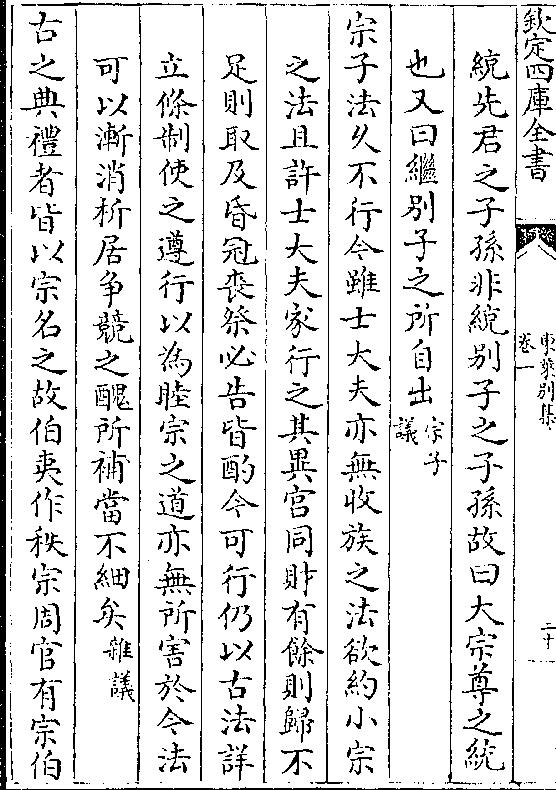 欽定四庫全書
東萊別集
卷一
二十
統先君之子孫非統别子之子孫故曰大宗尊之統
也又曰繼别子之所自出宗子議
宗子法久不行今雖士大夫亦無收族之法欲約小宗
之法且許士大夫家行之其異宫同財有餘則歸不
足則取及昏冠喪祭必告皆酌今可行仍以古法詳
立條制使之遵行以為睦宗之道亦無所害於今法
可以漸消析居争競之醜所補當不細矣雜議
古之典禮者皆以宗名之故伯夷作秩宗周官有宗伯